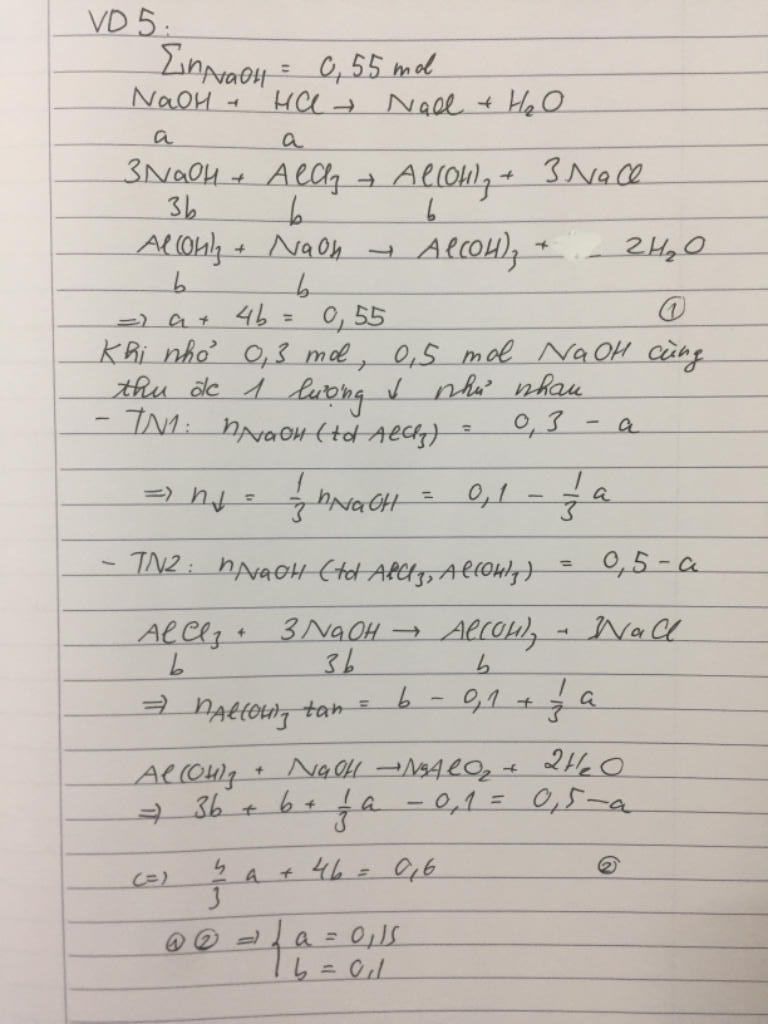 VD 5:
∑n NaOH = 0,55 mol
NaOH + HCl → NaCl + H₂O
a a
3NaOH + AlCl₃ → Al(OH)₃ + 3NaCl
3b b b
Al(OH)₃ + NaOH → Al(OH)₃ + 2H₂O
b b
=> a + 4b = 0,55 ①
Khi nhỏ 0,3 mol, 0,5 mol NaOH cùng
thu đc 1 lượng ↓ như nhau
- TN1: n NaOH (td AlCl₃) = 0,3 - a
=> n↓ = 1/3 n NaOH = 0,1 - 1/3 a
- TN2: n NaOH (td AlCl₃, Al(OH)₃) = 0,5 - a
AlCl₃ + 3NaOH → Al(OH)₃ + 3NaCl
b 3b b
=> n Al(OH)₃ tan = b - 0,1 + 1/3 a
Al(OH)₃ + NaOH → NaAlO₂ + 2H₂O
=> 3b + b + 1/3 a - 0,1 = 0,5 - a
<=> 4/3 a + 4b = 0,6 ②
① ② => { a = 0,15
b = 0,1